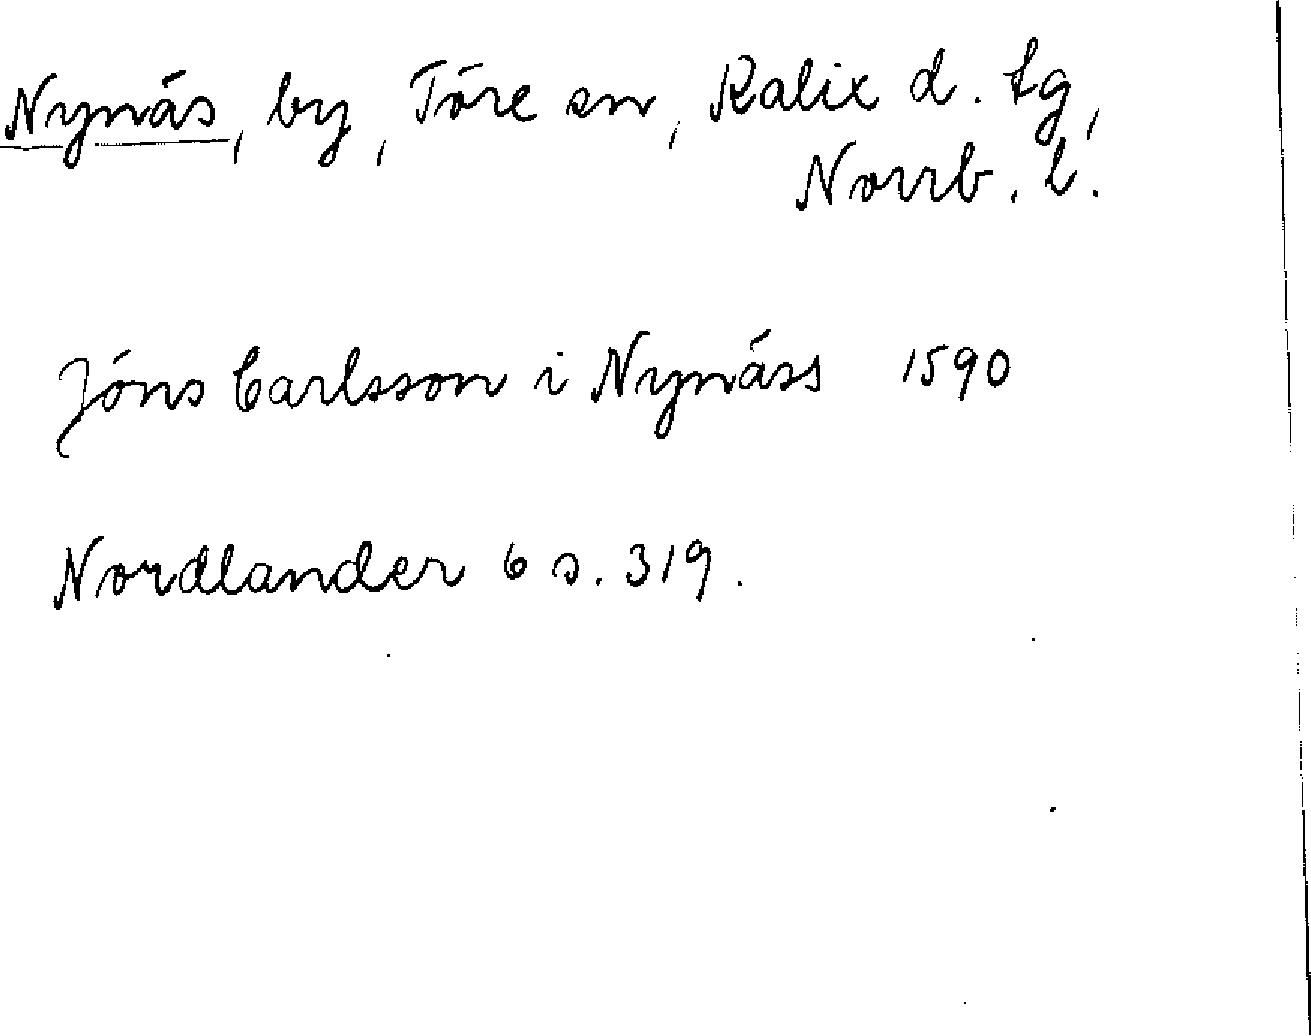 Nynäs, by, Töre sn, Kalix d. tg,
Norrb. l.
Jöns Carlsson i Nynäss 1590
Nordlander 6 s. 319.